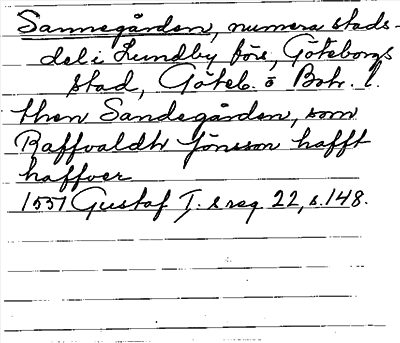 Sannegården, numera stads-
del i Lundby förs, Göteborgs
stad, Göteb. o Boh. l.
then Sandegården, som
Raffvaldh Jönsson hafft
haffver
1551 Gustaf I. s reg. 22, s. 148.